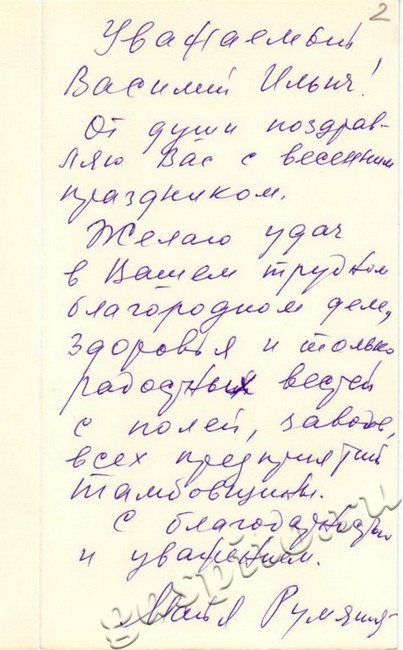 2
Уважаемый
Василий Ильич!
От души поздрав-
ляю Вас с весенним
праздником.
Желаю удач
в Вашем трудном
благородном деле,
здоровья и только
радостных вестей
с полей, заводов,
всех предприятий
Тамбовщины.
С благодарностью
и уважением.
Майя Румянц
guspito.ru